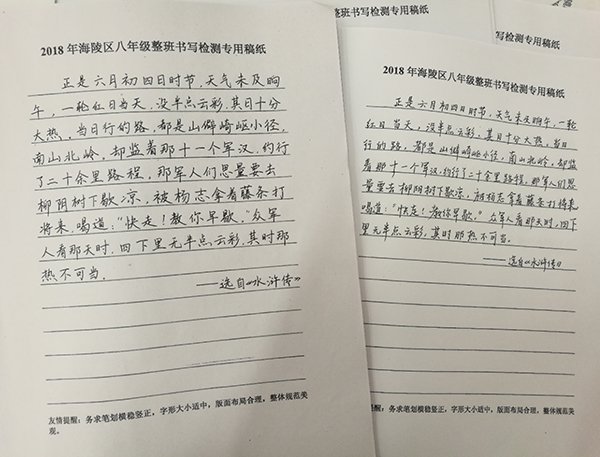 2018年海陵区八年级整班书写检测专用稿纸
正是六月初四日时节,天气未及晌
午,一轮红日当天,没半点云彩,其日十分
大热,当日行的路,都是山僻崎岖小径,
南山北岭,却监着那十一个军汉,约行
了二十余里路程,那军人们思量要去
柳阴树下歇凉,被杨志拿着藤条打
将来,喝道:“快走!教你早歇,”众军
人看那天时,四下里无半点云彩,其时那
热不可当.
——选自《水浒传》
友情提醒:务求笔划横稳竖正,字形大小适中,版面布局合理,整体规范美
观。
2018年海陵区八年级整班书写检测专用稿纸
正是六月初四日时节,天气未及晌午,一轮
红日当天,没半点云彩,其日十分大热,当日
行的路,都是山僻崎岖小径,南山北岭,却监
着那十一个军汉,约行了二十余里路程,那军人们思
量要去柳阴树下歇凉,被杨志拿着藤条打将来
喝道:“快走!教你早歇,”众军人看那天时,四下
里无半点云彩,其时那热不可当。
——选自《水浒传》
友情提醒:务求笔划横稳竖正,字形大小适中,版面布局合理,整体规范美
观。
整班书写检测专用稿纸
测专用稿纸